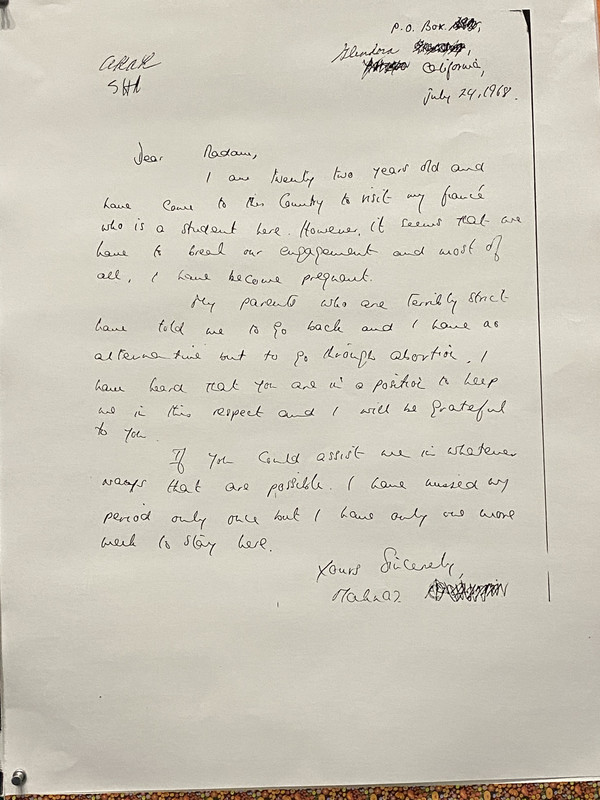 P.O. Box
Glendora
California,
July 24, 1968.
ARAR
Dear Madam,
I am twenty two years old and
have come to this Country to visit my fiancé
who is a student here. However, it seems that we
have to break our engagement and most of
all, I have become pregnant.
My parents who are terribly strict
have told me to go back and I have no
alternative but to go through abortion. I
have heard that you are in a position to help
me in this respect and I will be grateful
to you.
If you could assist me in whatever
ways that are possible. I have missed my
period only once but I have only one more
week to stay here.
Yours Sincerely,
Mahnaz